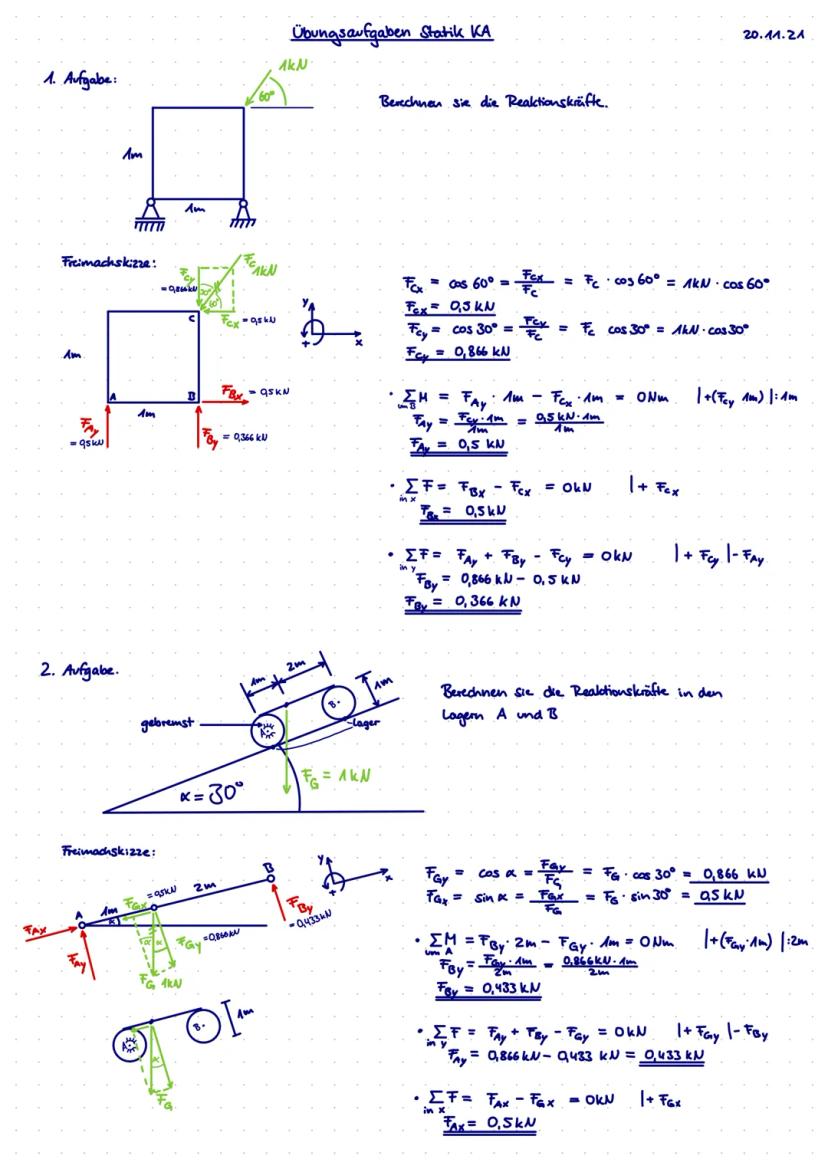 Übungsaufgaben Statik KA
20.11.21
1. Aufgabe:
1kN
60°
1m
1m
Berechnen sie die Reaktionskräfte.
Freimachskizze:
F_Cy = 0,866kN
F_C 1kN
30°
60°
F_Cx = 0,5kN
C
y
x
+
1m
A
B
1m
F_Bx = 0,5kN
F_Ay = 0,5kN
F_By = 0,366 kN
F_Cx = cos 60° = F_Cx/F_C = F_C · cos 60° = 1kN · cos 60°
F_Cx = 0,5 kN
F_Cy = cos 30° = F_Cy/F_C = F_C cos 30° = 1kN · cos 30°
F_Cy = 0,866 kN
· ∑M um B = F_Ay · 1m − F_Cx · 1m = 0Nm |+(F_Cy 1m) |:1m
F_Ay = F_Cy · 1m/1m = 0,5 kN · 1m/1m
F_Ay = 0,5 kN
· ∑F in x = F_Bx − F_Cx = 0kN |+ F_Cx
F_Bx = 0,5 kN
· ∑F in y = F_Ay + F_By − F_Cy = 0kN |+ F_Cy |− F_Ay
F_By = 0,866 kN − 0,5 kN
F_By = 0,366 kN
2. Aufgabe.
1m
2m
1m
gebremst
A
B
Lager
F_G = 1kN
α = 30°
Berechnen sie die Reaktionskräfte in den
Lagern A und B
Freimachskizze:
A
1m
F_Gx = 0,5kN
2m
B
y
x
+
F_Ax
F_Ay
α
α
F_Gy = 0,866kN
F_G 1kN
F_By = 0,433kN
A
B
1m
α
F_G
F_Gy = cos α = F_Gy/F_G = F_G · cos 30° = 0,866 kN
F_Gx = sin α = F_Gx/F_G = F_G · sin 30° = 0,5 kN
· ∑M um A = F_By · 2m − F_Gy · 1m = 0Nm |+(F_Gy · 1m) |:2m
F_By = F_Gy · 1m/2m = 0,866kN · 1m/2m
F_By = 0,433 kN
· ∑F in y = F_Ay + F_By − F_Gy = 0kN |+ F_Gy |− F_By
F_Ay = 0,866 kN − 0,433 kN = 0,433 kN
· ∑F in x = F_Ax − F_Gx = 0kN |+ F_Gx
F_Ax = 0,5 kN